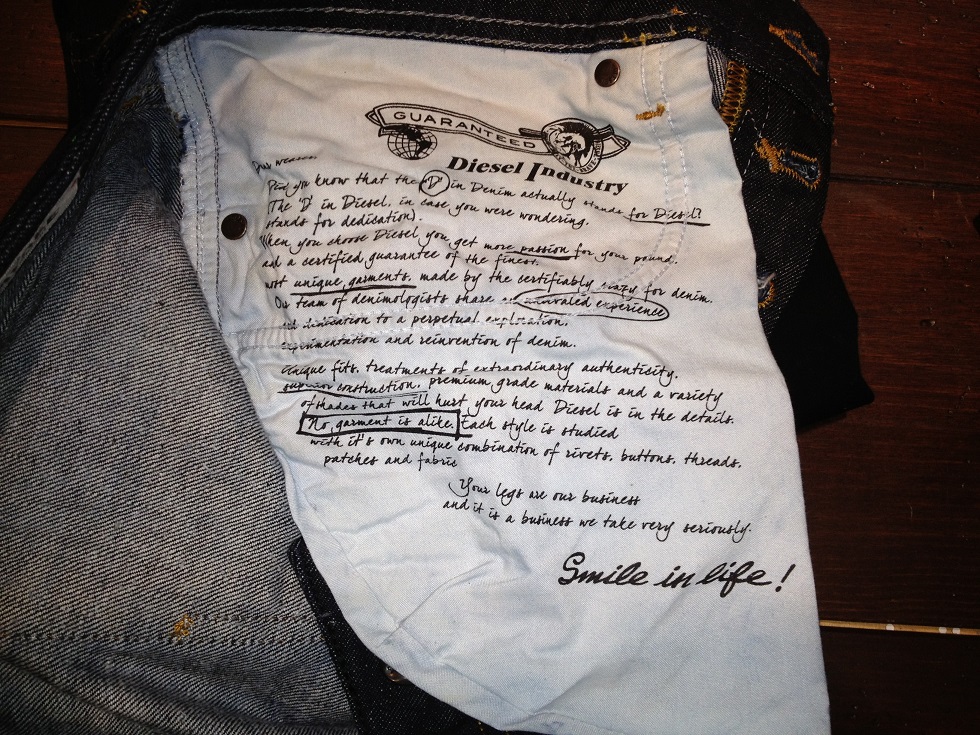 GUARANTEED
Diesel Industry
Dear wearer,
Did you know that the "D" in Denim actually stands for Diesel?
The 'D' in Diesel, in case you were wondering,
stands for dedication).
hen you choose Diesel you get more passion for your pound,
and a certified guarantee of the finest,
most unique garments, made by the certifiably crazy for denim.
Our team of denimologists share an unrivaled experience
and dedication to a perpetual exploration,
experimentation and reinvention of denim.
Unique fits, treatments of extraordinary authenticity,
superior construction, premium grade materials and a variety
of shades that will hurt your head Diesel is in the details.
No garment is alike. Each style is studied
with it's own unique combination of rivets, buttons, threads,
patches and fabric
Your legs are our business
and it is a business we take very seriously.
Smile in life!